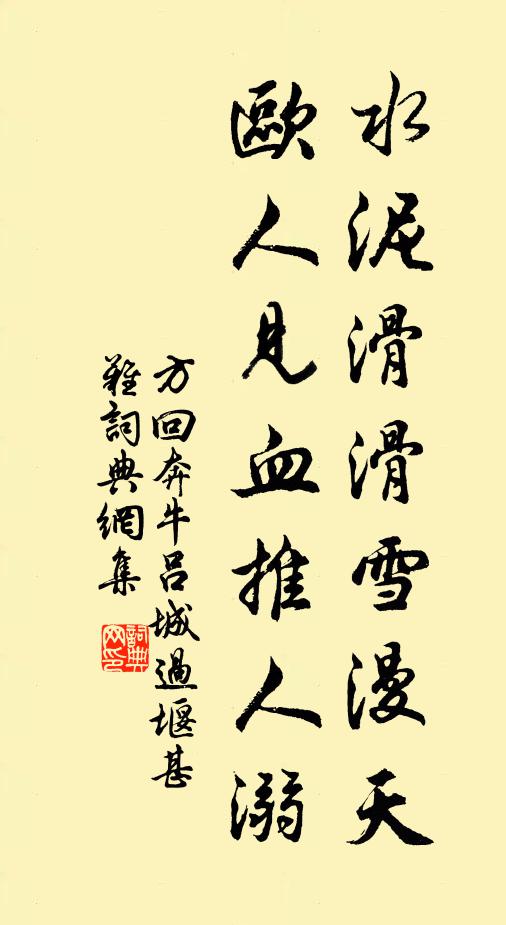 水泥滑滑雪漫天
歐人見血推人溺
方回奔牛呂城過堰甚
難詞典網集
詞典
網印